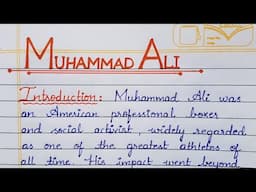 MUHAMMAD ALI
Introduction: Muhammad Ali was
an American professional boxer
and social activist, widely regarded
as one of the greatest athletes of
all time. His impact went beyond